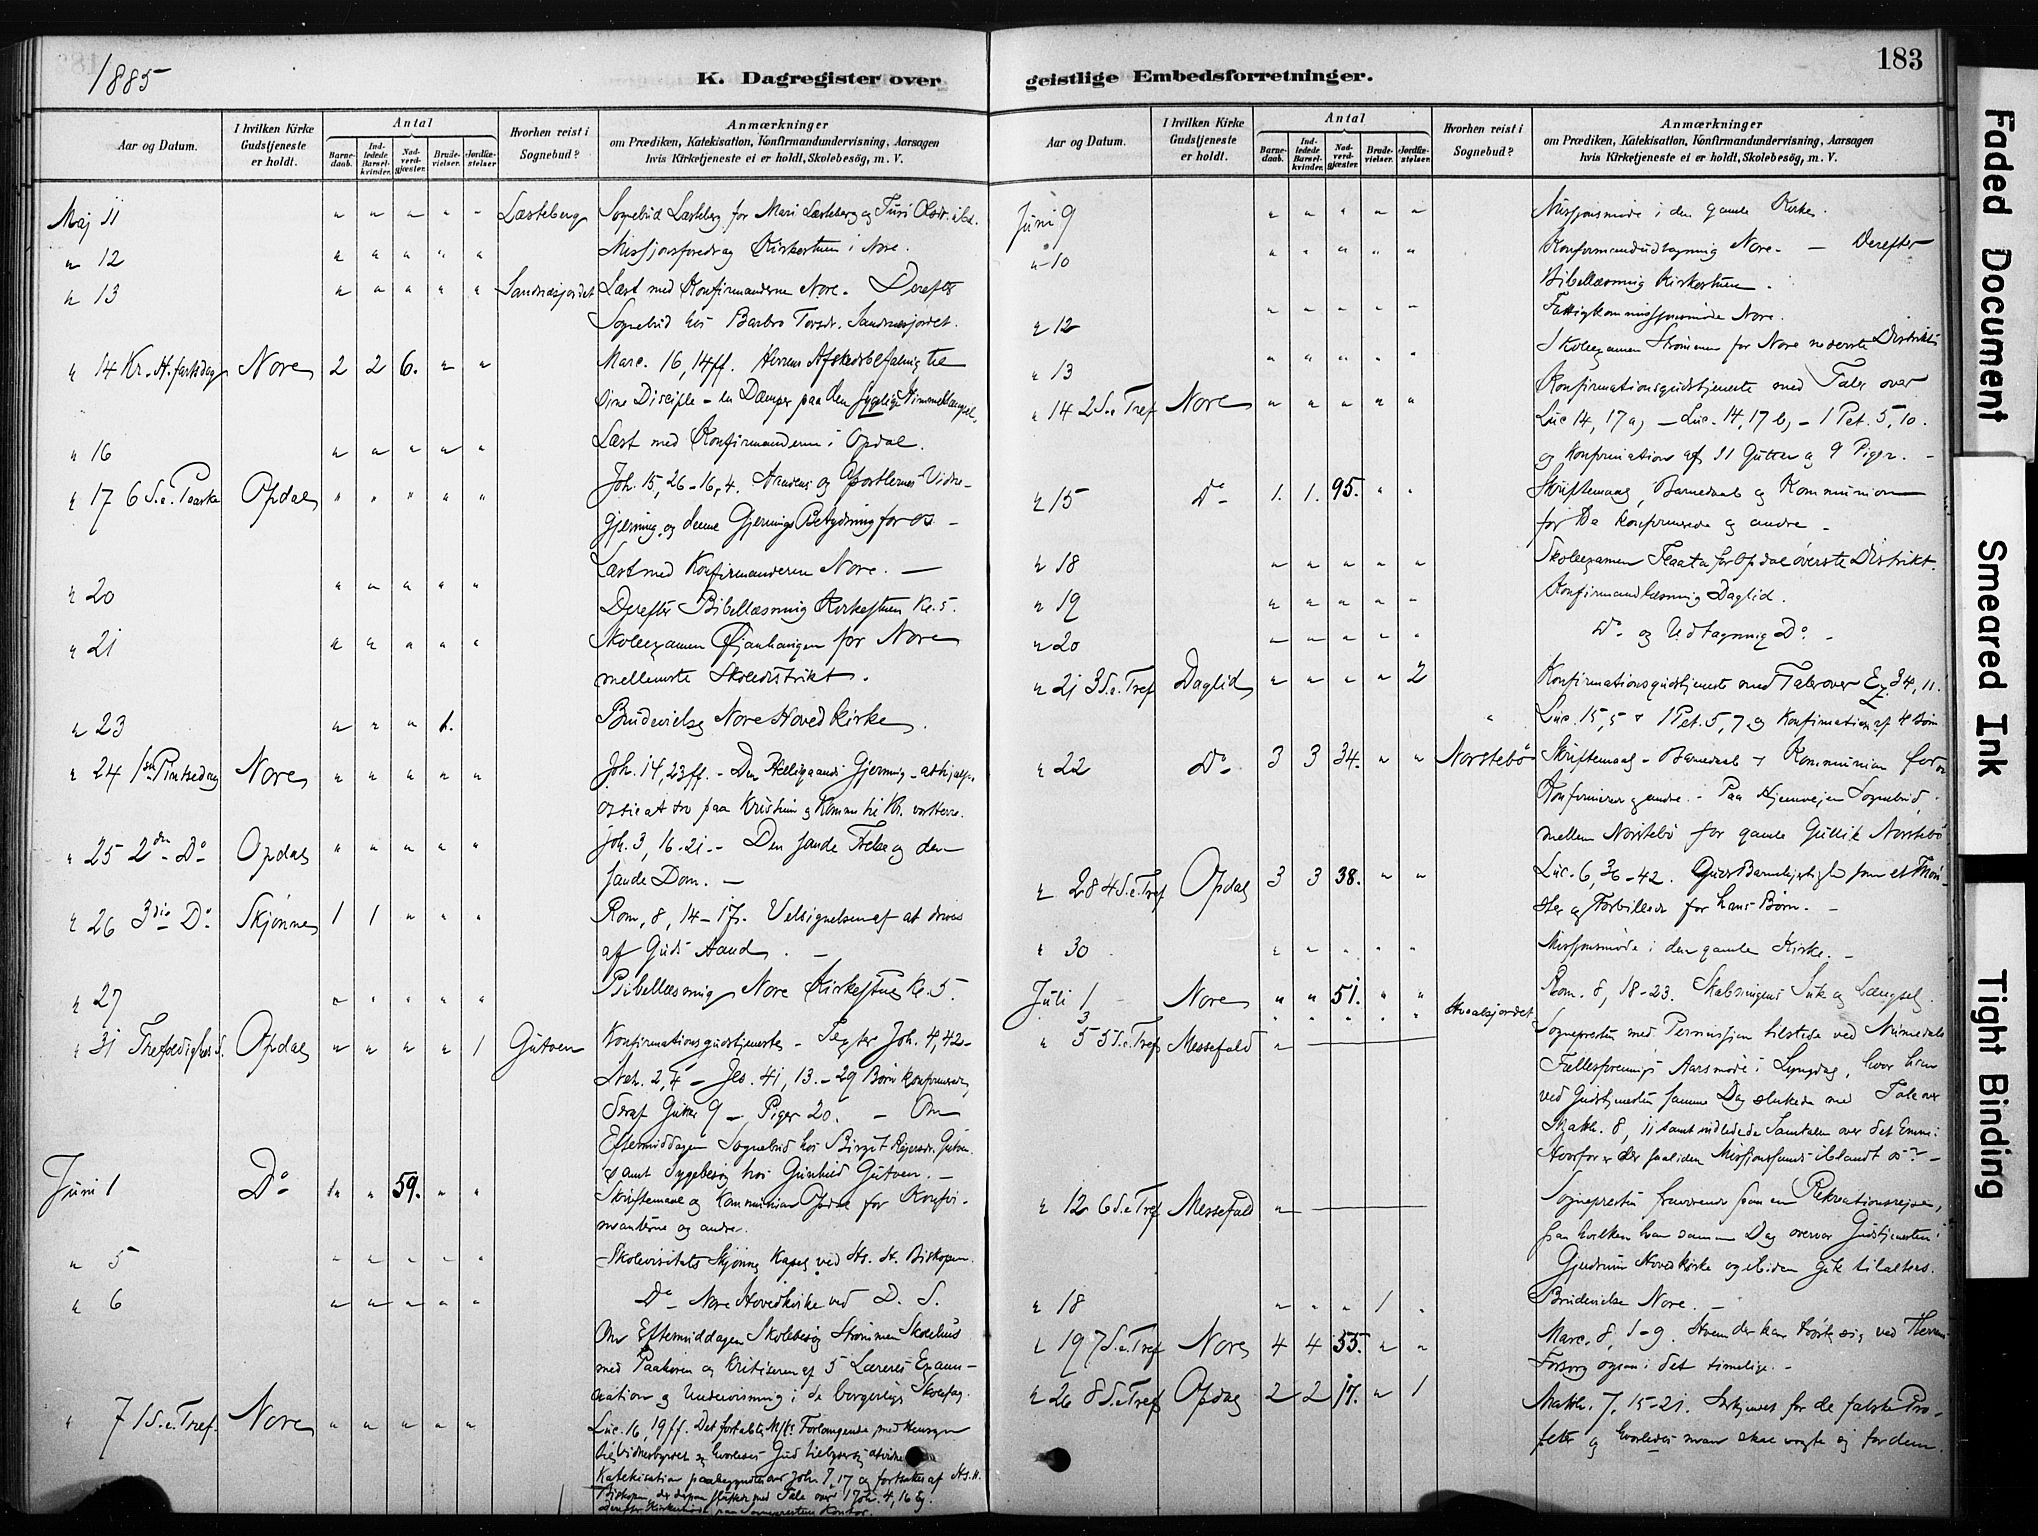 1885
K. Dagregister over geistlige Embedsforretninger.
183
Aar og Datum.
I hvilken Kirke Gudstjeneste er holdt.
Antal
Barne-daab.
Ind-ledede Barsel-kvinder.
Nad-verd-gjæster.
Brude-vielser.
Jordfæ-stelser.
Hvorhen reist i Sognebud?
Anmærkninger
om Prædiken, Katekisation, Konfirmandundervisning, Aarsagen
hvis Kirketjeneste ei er holdt, Skolebesög, m. V.
Maj 11 " " " " " Læsteberg Sognebud Læsteberg for Mari Læsteberg og Turi Olsdr.
" 12 " " " " " Missjonsforedrag Kirkestuen i Nore.
" 13 " " " " " Sandnæsjordet Læst med Konfirmanderne Nore. Derefter
Sognebud hos Barbro Torsdr. Sandnæsjordet.
" 14 Kr. H. fartsdag Nore 2 2 6. " " Marc. 16, 14 ff. Herrens Afskedsbefaling til
sine Disciple – en Dæmper paa den Himmellængsel.
" 16 " " " " " Læst med Konfirmanderne i Opdal.
" 17 6 S. e. Paaske Opdal " " " " " Joh. 15, 26–16, 4. Aandens og Apostlernes Vidne-
gjerning og denne Gjernings Betydning for os –
" 20 " " " " " Læst med Konfirmanderne Nore. –
Derefter Bibellæsning Kirkestuen Kl. 5.
" 21 " " " " " Skoleexamen for Nore
mellemste Skoledistrikt.
" 23 " " " 1. Brudevielse Nore Hovedkirke.
" 24 1ste Pintsedag Nore " " " " " Joh. 14, 23 ff. – Den Helligaands Gjerning – at hjælpe
os til at tro paa Kristum og komme til Kr.
" 25 2den Do Opdal " " " " " Joh. 3, 16–21. – Den sande Frelse og den
sande Dom. –
" 26 3die Do Skjønne 1 1 " " " Rom. 8, 14–17. Velsignelsen af at drives
af Guds Aand. –
" 27 " " " " " Bibellæsning Nore Kirkestue Kl. 5.
" 31 Trefoldigheds S. Opdal " " " " 1 Gütven Konfirmationsgudstjeneste – Texter Joh. 4, 42 –
Neh. 2, 4 – Jes. 41, 13. – 29 Børn konfirmerede,
deraf Gutter 9 –, Piger 20. – Om
Eftermiddagen Sognebud hos Birgit Gütven
samt Sygebesøg hos Gunhild Gütven. –
Juni 1 Do " " 59. " " Skriftemaal og Kommunion Opdal for Konfir-
manterne og andre.
" 5 " " " " " Skolevisitats Skjønne Kapel ved Hs. H. Biskopen.
" 6 " " " " " Do – Nore Hovedkirke ved D. S.
Om Eftermiddagen Skolebesøg Strømmen Skolehus
med Paahøren og Kritiseren af 5 Læreres Exami-
nation og Undervisning i de borgerlige Skolefag.
" 7 1 S. e. Tref. Nore " " " " " Luc. 16, 19 ff. Det fortabte Forlangende med Hensyn
Gud
Katekisation paabegyndtes over Joh. 7, 17 og fortsattes af Hs. H.
Biskopen, der derpaa sluttede med Tale over 1 Joh. 4, 16
Aar og Datum.
I hvilken Kirke Gudstjeneste er holdt.
Antal
Barne-daab.
Ind-ledede Barsel-kvinder.
Nad-verd-gjæster.
Brude-vielser.
Jordfæ-stelser.
Hvorhen reist i Sognebud?
Anmærkninger
om Prædiken, Katekisation, Konfirmandundervisning, Aarsagen
hvis Kirketjeneste ei er holdt, Skolebesög, m. V.
Juni 9 " " " " " Missjonsmøde i den gamle Kirke.
" 10 " " " " " Konfirmandudtagning Nore. – Derefter
Bibellæsning Kirkestuen.
" 12 " " " " " Fattigkommissjonsmøde Nore.
" 13 " " " " " Skoleexamen Strømmen for Nore nederste Distrikt.
" 14 2 S. e. Tref. Nore " " " " " Konfirmationsgudstjeneste med Taler over
Luc 14, 17 a) – Luc. 14, 17 b) – 1 Pet. 5, 10.
og Konfirmation af 11 Gutter og 9 Piger. –
" 15 Do 1. 1. 95. " " Skriftemaal, Barnedaab og Kommunion
for De konfirmerede og andre –
" 18 " " " " " Skoleexamen Flaata for Opdal øverste Distrikt.
" 19 " " " " " Konfirmandlæsning Daglid.
" 20 " " " " " Do og Udtagning Do. –
" 21 3 S. e. Tref Daglid " " " " 2 Konfirmationsgudstjeneste med Taler over Ez. 34, 11.
Luc. 15, 5 & 1 Pet. 5, 7 og Konfirmation af 4 Børn
" 22 Do 3 3 34. " " Norstebø Skriftemaal – Barnedaab & Kommunion for
Konfirmerede og andre. – Paa Hjemvejen Sognebud
mellem Norstebø for gamle Gullik Norstebø
" 28 4 S. e. Tref. Opdal 3 3 38. " " Luc. 6, 36–42. Guds Barmhjertighed som et Møn-
ster og Forbillede for hans Børn. –
" 30 " " " " " Missjonsmøde i den gamle Kirke. –
Juli 1 Nore " " 51. " " Rom. 8, 18–23. Skabningens Suk og Længsel.
3 " " " " " Hvaalsjordet
" 5 5 S. e. Tref Messefald " Sognepresten med Permissjon tilstede ved Numedals
Fællesforenings Aarsmøde i Lyngdal, hvor han
ved Gudstjenesten samme Dag sluttede med Tale over
Matth. 8, 11 samt indledede Samtalen over det Emne:
Hvorfor er der saa liden Missjonssands iblandt os? –
" 12 6 S. e. Tref Messefald " Sognepresten fraværende paa en Rekreationsrejse,
paa hvilken han samme Dag overvar Gudstjenesten i
Gjerdrum Hovedkirke og selv gik til alters.
" 18 " " " 1 " Brudevielse Nore. –
" 19 7 S. e. Tref Nore 4 4 55. " " Marc. 8, 1–9. Hvem der kan trøste sig ved Herrens
Forsorg ogsaa i det timelige. –
" 26 8 S. e. Tref Opdal 2 2 17. " 1 Matth. 7, 15–21. for de falske Pro-
feter og hvorledes man skal vogte sig for dem.
Faded Document
Smeared Ink
Tight Binding